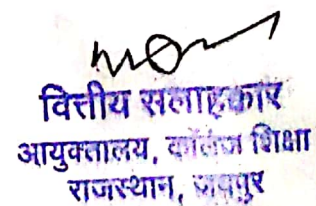 वित्तीय सलाहकार
आयुक्तालय, कॉलेज शिक्षा
राजस्थान, जयपुर